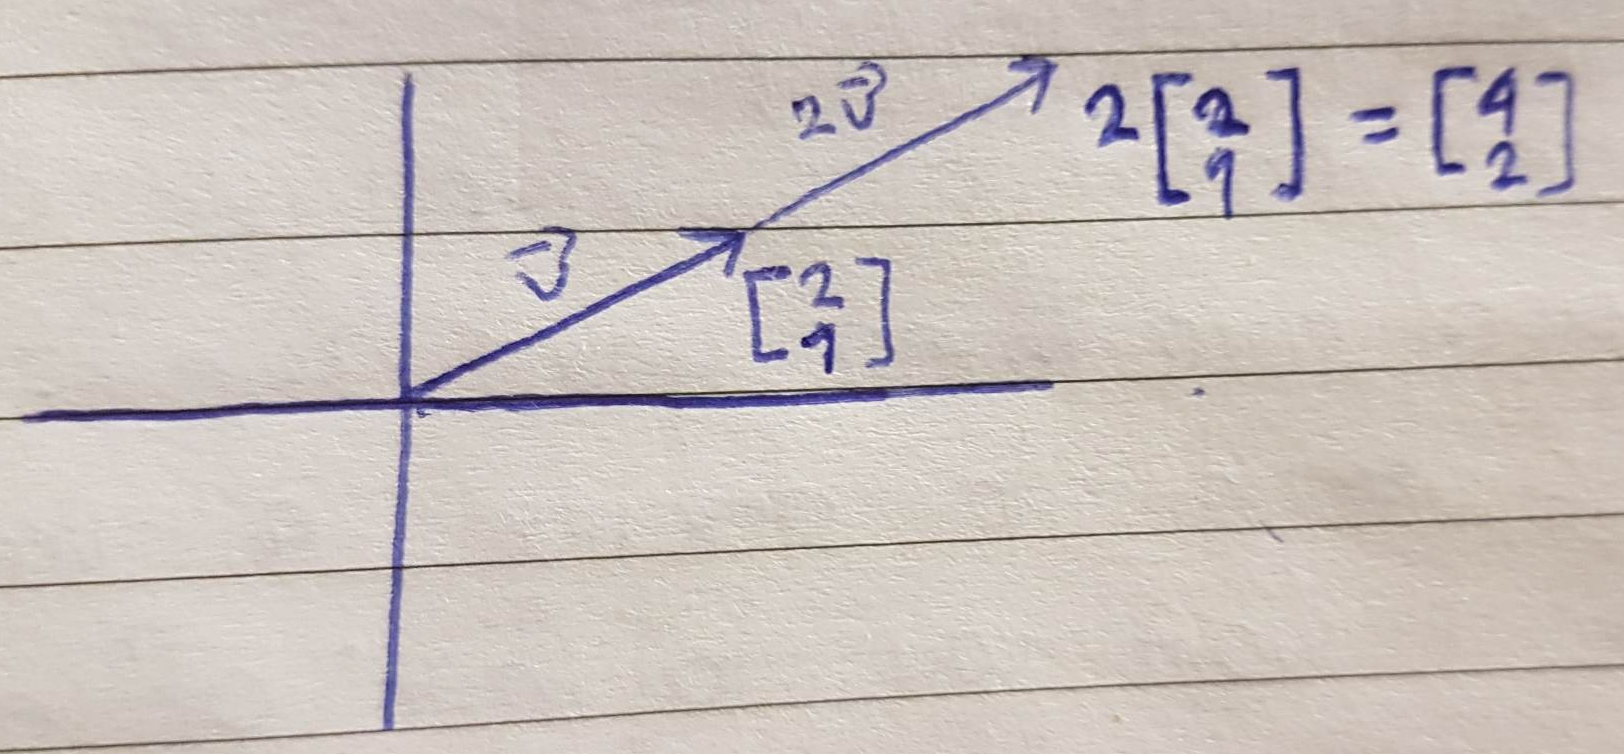 2v⃗ 2[2 1] = [4 2]
v⃗ [2 1]